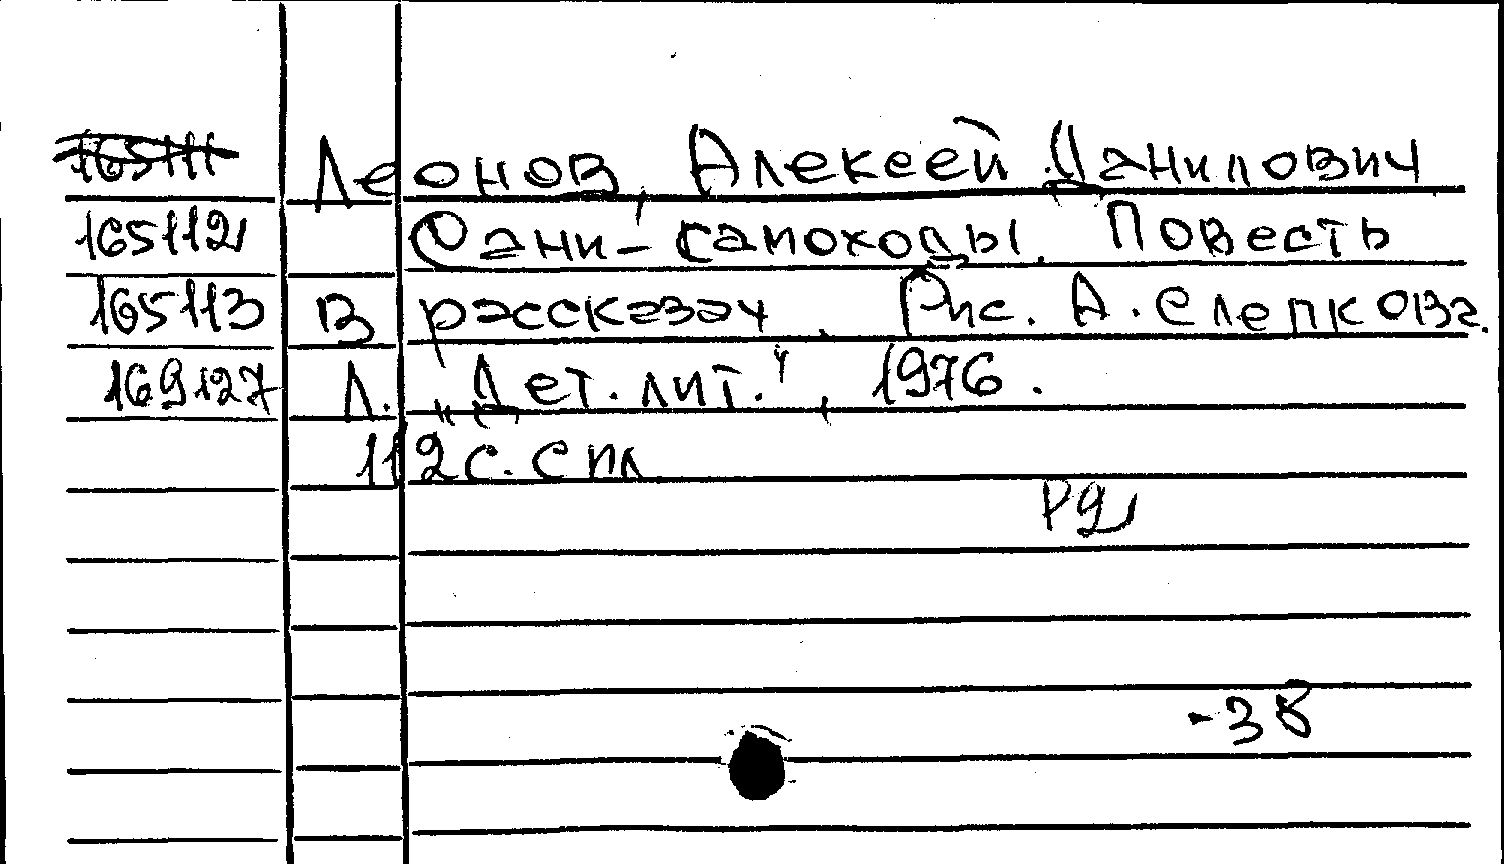 165111 Леонов, Алексей Данилович
165112 Сани-самоходы. Повесть
165113 в рассказах. Рис. А. Слепкова.
169127 Л. „Дет. лит.", 1976.
112с. с ил
Р2
-38